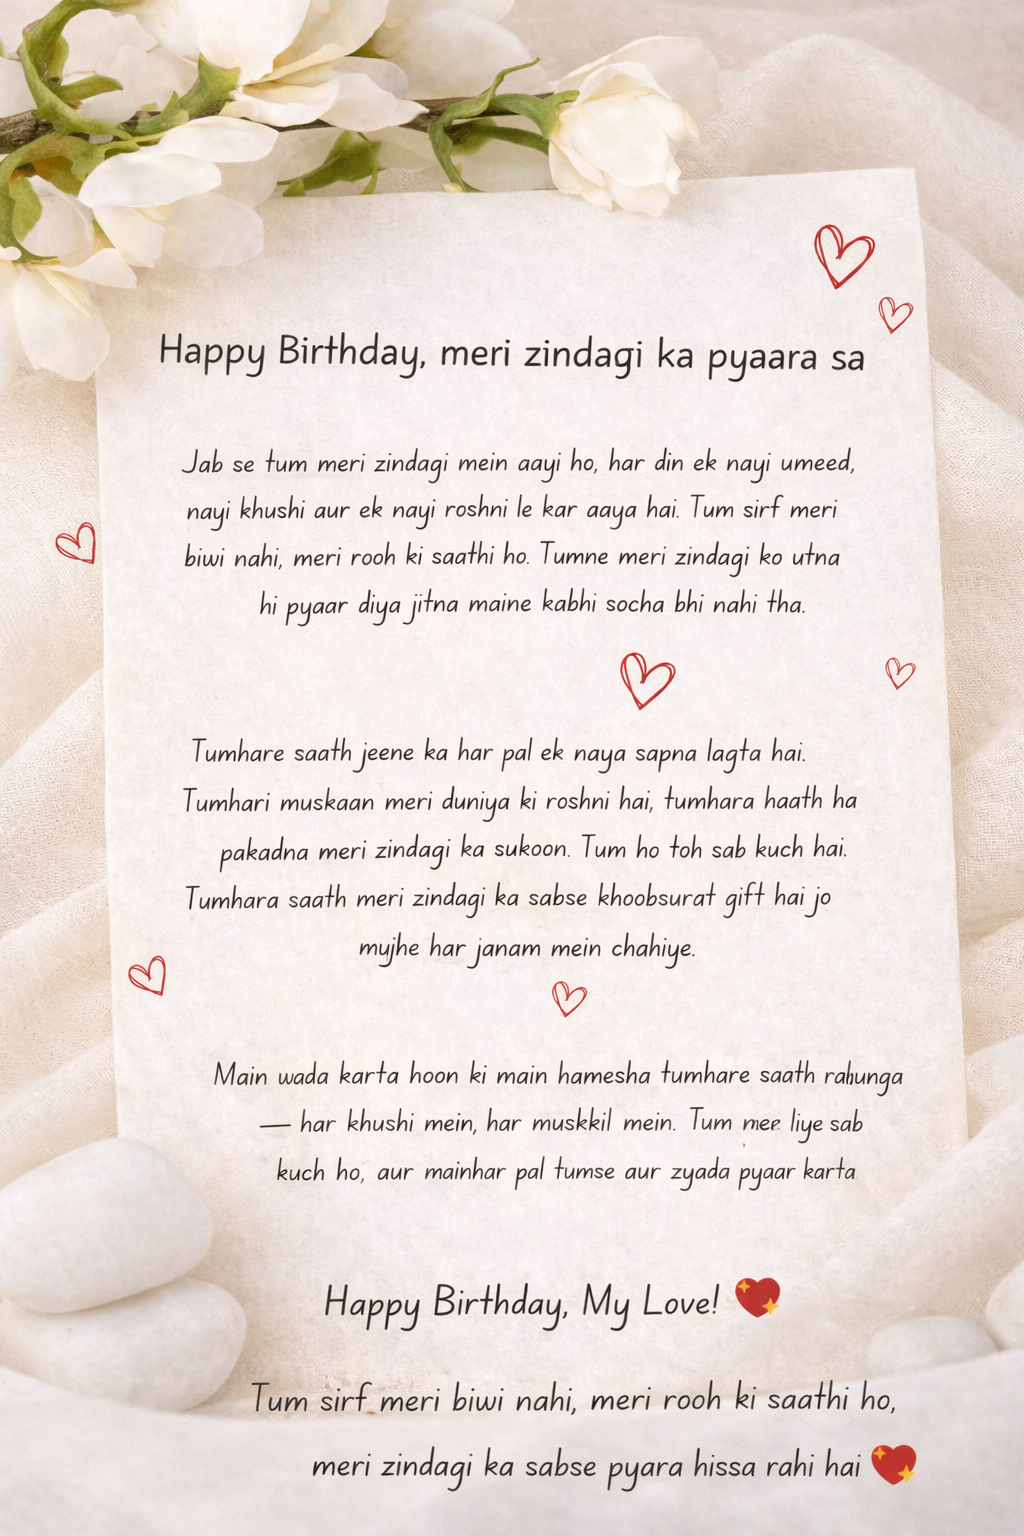 Happy Birthday, meri zindagi ka pyaara sa
Jab se tum meri zindagi mein aayi ho, har din ek nayi umeed,
nayi khushi aur ek nayi roshni le kar aaya hai. Tum sirf meri
biwi nahi, meri rooh ki saathi ho. Tumne meri zindagi ko utna
hi pyaar diya jitna maine kabhi socha bhi nahi tha.
Tumhare saath jeene ka har pal ek naya sapna lagta hai.
Tumhari muskaan meri duniya ki roshni hai, tumhara haath ha
pakadna meri zindagi ka sukoon. Tum ho toh sab kuch hai.
Tumhara saath meri zindagi ka sabse khoobsurat gift hai jo
mujhe har janam mein chahiye.
Main wada karta hoon ki main hamesha tumhare saath
— har khushi mein, har muskkil mein. Tum liye sab
kuch ho, aur mainhar pal tumse aur zyada pyaar karta
Happy Birthday, My Love! 💖
Tum sirf meri biwi nahi, meri rooh ki saathi ho,
meri zindagi ka sabse pyara hissa rahi hai 💖